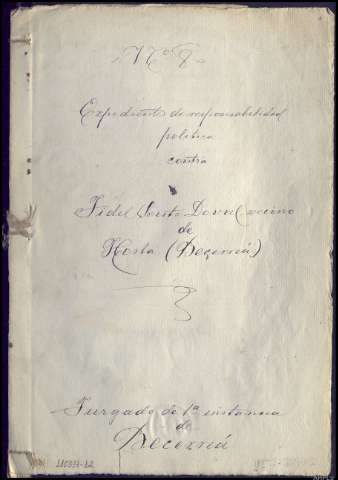 Nº 8
Expediente de responsabilidad
politica
contra
Fidel Couto Doval vecino
de
Horta (Becerreá)
Juzgado de 1ª instancia
de
Becerreá